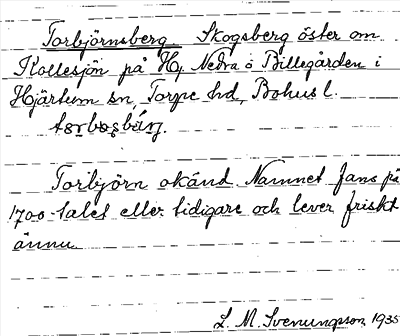 Torbjörnsberg. Skogsberg öster om
Kollesjön på Hj. Nedra o Billegården i
Hjärtum sn, Torpe hd, Bohus l.
Torbjörn okänd. Namnet fans på
1700-talet eller tidigare och lever friskt
ännu.
L. M. Svenungsson 1935